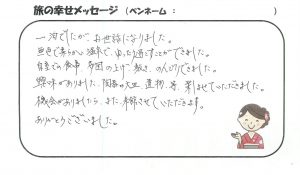 旅の幸せメッセージ（ペンネーム：　　　　）
一泊でしたが、お世話になりました。
無色で柔らかい温泉で、ゆったり過ごすことができました。
自室での食事、布団の上げ敷き、のんびりできました。
興味がありました、陶器の大皿、置物、等、楽しませていただきました。
機会がありましたら、また来館させていただきます。
ありがとうございました。